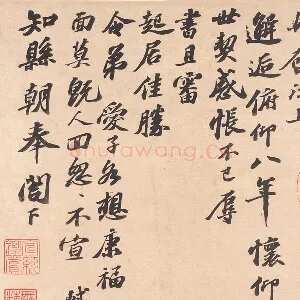 江上
邂逅俯仰八年懷仰
世契感悵不已辱
書且審
起居佳勝
令弟愛子各想康福
面莫既人回忽忽不宣軾
知縣朝奉閣下
shufawang.cn